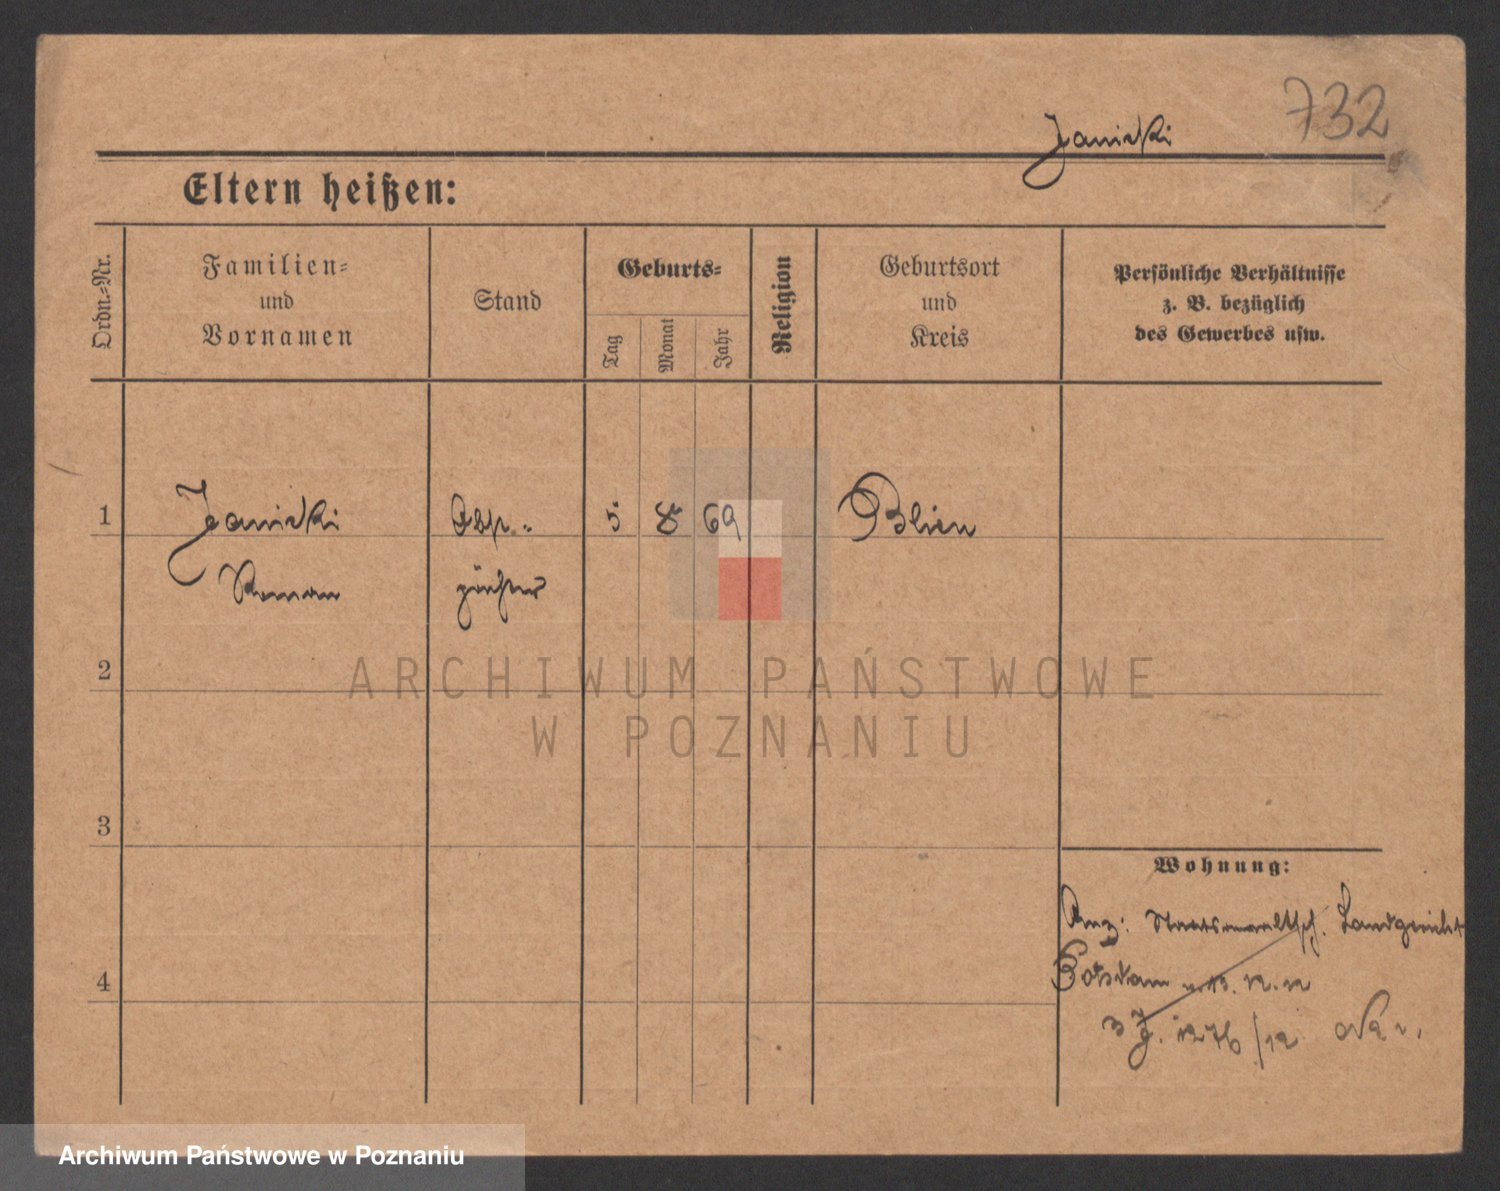 732
Janicki
Eltern heißen:
Ordn.-Nr.
Familien-
und
Vornamen
Stand
Geburts-
Tag
Monat
Jahr
Religion
Geburtsort
und
Kreis
Persönliche Verhältnisse
z. B. bezüglich
des Gewerbes usw.
1
Janicki
Obst-
5
8
69
Roman
pächter
2
ARCHIWUM PAŃSTWOWE
W POZNANIU
3
Wohnung:
Staatsanwaltsch. Landgericht
4
Potsdam 12. 12
3 J. 1276/12
Archiwum Państwowe w Poznaniu